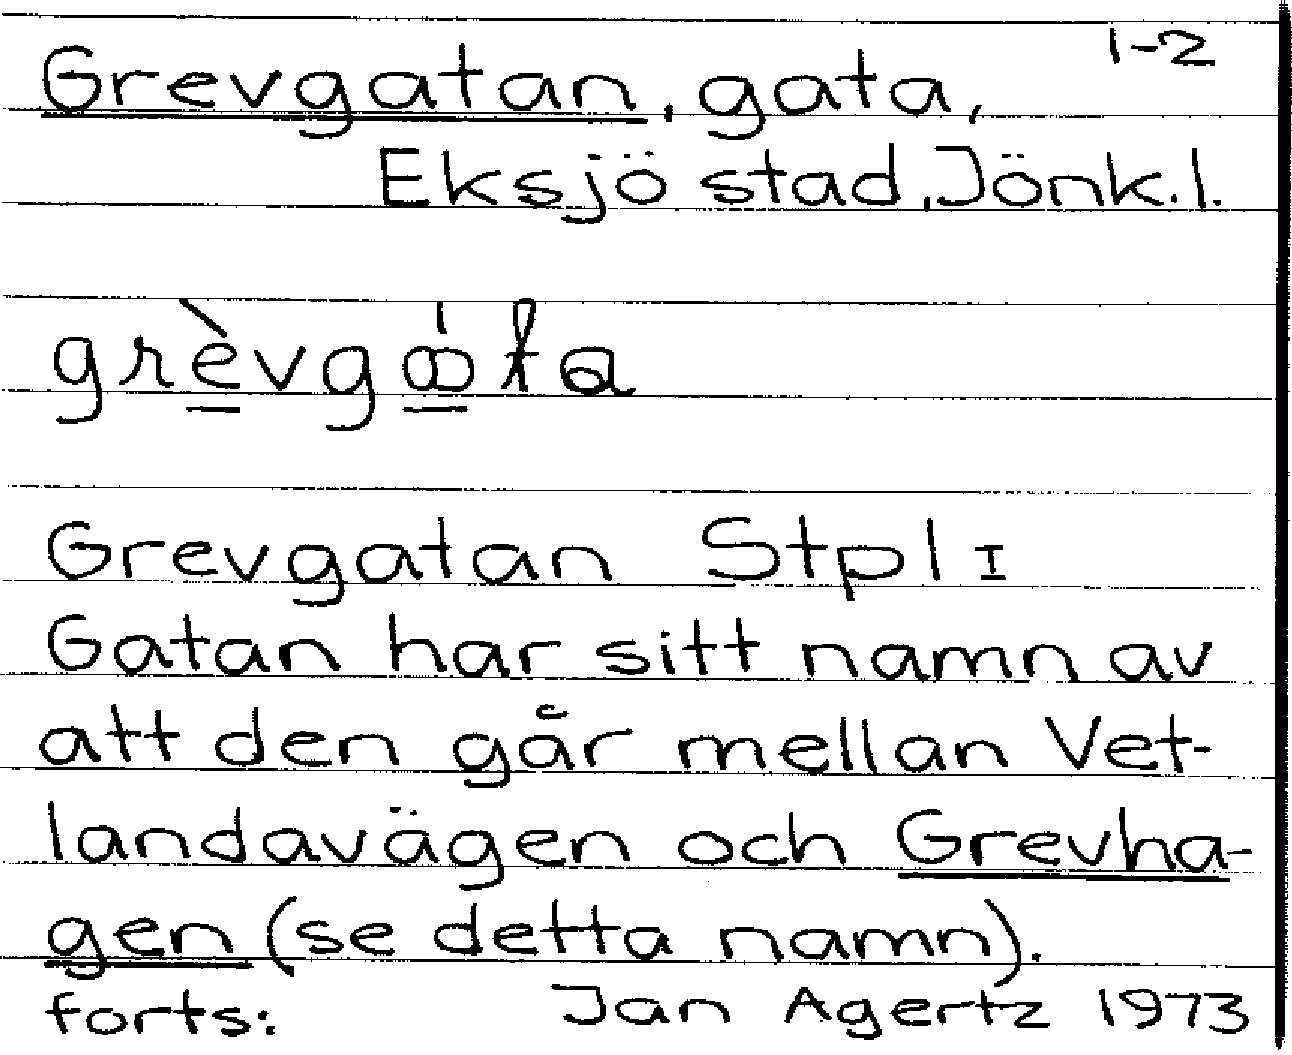 1-2
Grevgatan, gata,
Eksjö stad, Jönk.l.
Grevgatan Stpl I
Gatan har sitt namn av
att den går mellan Vet-
landavägen och Grevha-
gen (se detta namn).
forts: Jan Agertz 1973